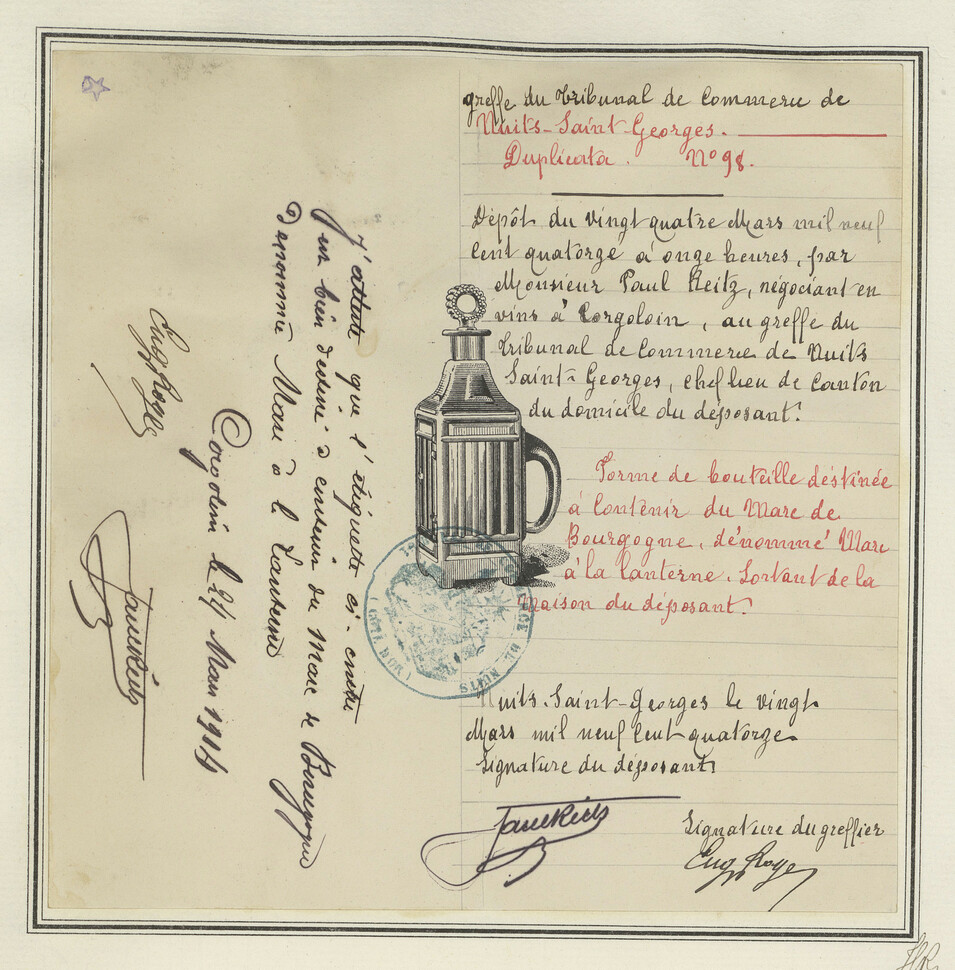 greffe du Tribunal de Commerce de
Nuits-Saint-Georges.
Duplicata. N° 98.
Dépôt du vingt quatre Mars mil neuf
cent quatorze à onze heures, par
Monsieur Paul Reitz, négociant en
vins à Corgoloin, au greffe du
Tribunal de Commerce de Nuits
Saint-Georges, chef lieu de Canton
du domicile du déposant.
Forme de bouteille déstinée
à contenir du Marc de
Bourgogne, dénommé Marc
à la lanterne. Sortant de la
Maison du déposant.
Nuits-Saint-Georges le vingt
Mars mil neuf cent quatorze
Signature du déposant
Paul Reitz
Signature du greffier
Eug Roye
J'atteste que l'étiquette ci-contre
est bien destiné à contenir du Marc de Bourgogne
Denommé Marc à la Lanterne
Corgoloin le 24 Mars 1914
Eug Roye
Paul Reitz
NUITS
(COTE D'OR)